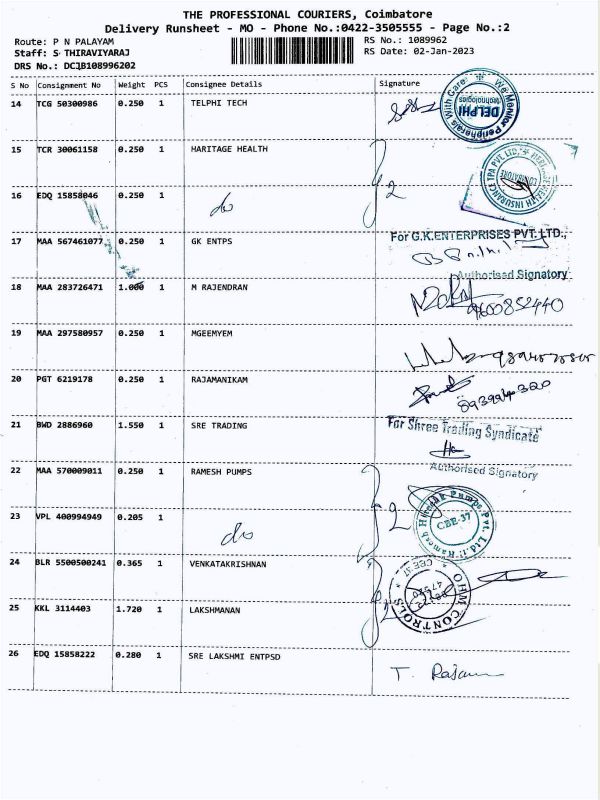 THE PROFESSIONAL COURIERS, Coimbatore
Delivery Runsheet - MO - Phone No.:0422-3505555 - Page No.:2
Route: P N PALAYAM RS No.: 1089962
Staff: S THIRAVIYARAJ RS Date: 02-Jan-2023
DRS No.: DC1B108996202
S No Consignment No Weight PCS Consignee Details Signature
14 TCG 50300986 0.250 1 TELPHI TECH
We Monitor Peripherals With Care
DELPHI
technologies
15 TCR 30061158 0.250 1 HARITAGE HEALTH
HEALTH INSURANCE TPA PVT LTD.
COIMBATORE
2
16 EDQ 15858046 0.250 1 do
17 MAA 567461077 0.250 1 GK ENTPS
For G.K.ENTERPRISES PVT. LTD.,
Authorised Signatory
18 MAA 283726471 1.000 1 M RAJENDRAN
9600852440
19 MAA 297580957 0.250 1 MGEEMYEM
20 PGT 6219178 0.250 1 RAJAMANIKAM
21 BWD 2886960 1.550 1 SRE TRADING
For Shree Trading Syndicate
Authorised Signatory
22 MAA 570009011 0.250 1 RAMESH PUMPS
2
Pumps Pvt. Ltd.
CBE-37
23 VPL 400994949 0.205 1 do
24 BLR 5500500241 0.365 1 VENKATAKRISHNAN
OHM CONTROLS
CBE 37
2
25 KKL 3114403 1.720 1 LAKSHMANAN
26 EDQ 15858222 0.280 1 SRE LAKSHMI ENTPSD